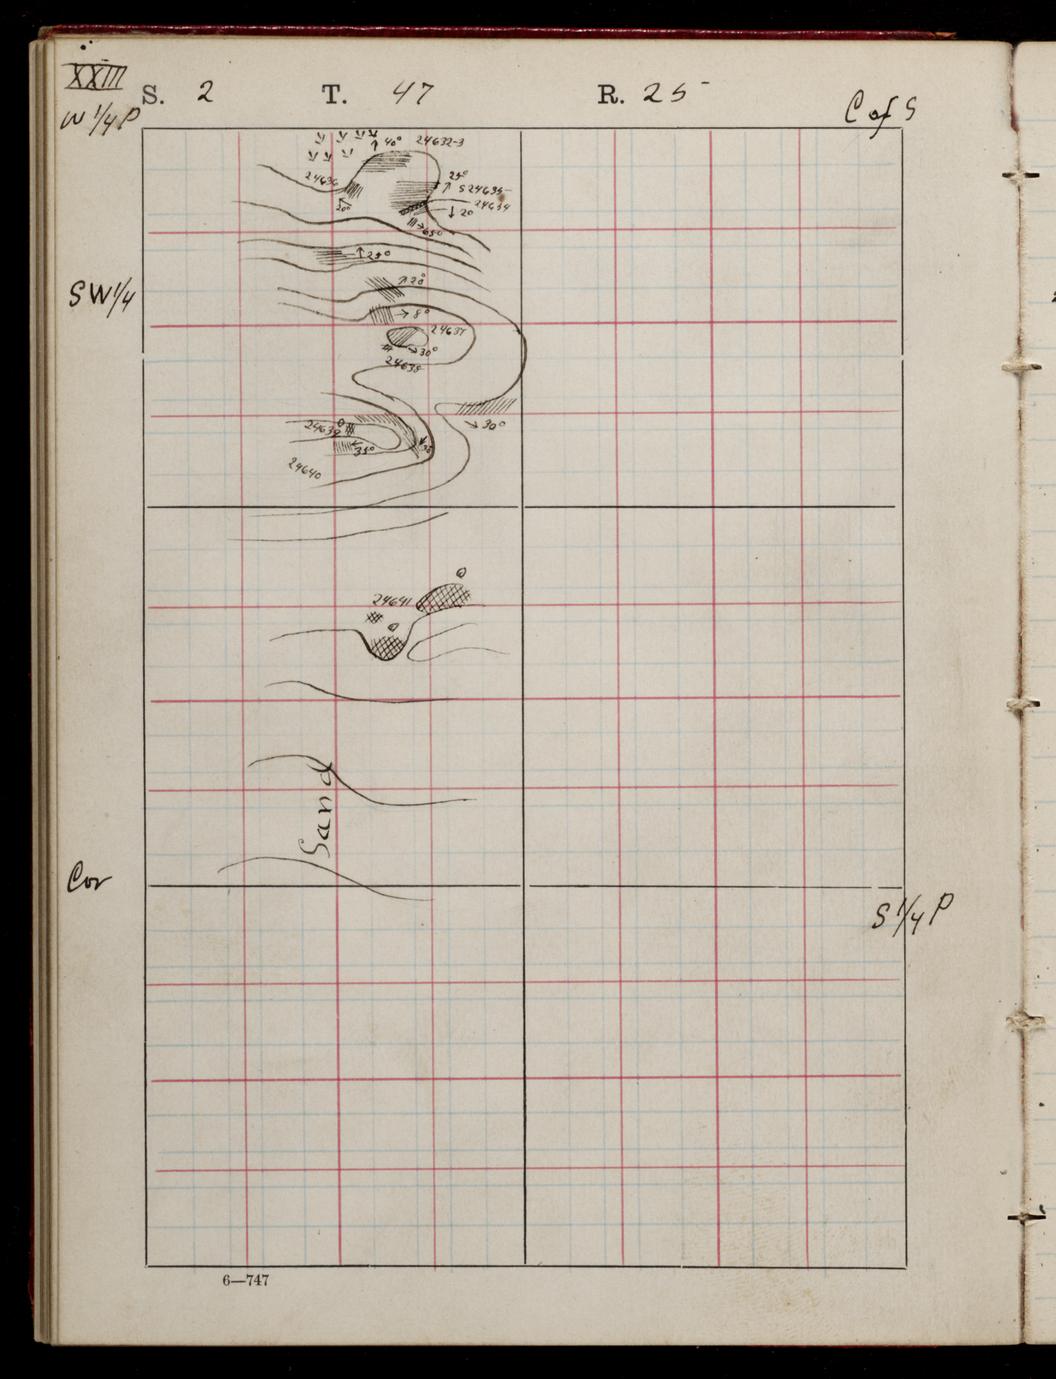 XXIII
S. 2 T. 47 R. 25
W 1/4 P
C of S
40° 24632-3
24636
25°
S 24635
24634
30°
20
65°
25°
20°
SW 1/4
8°
24637
30°
24638
24639
30°
35°
24640
24641
Sand
Cor
S 1/4 P
6—747